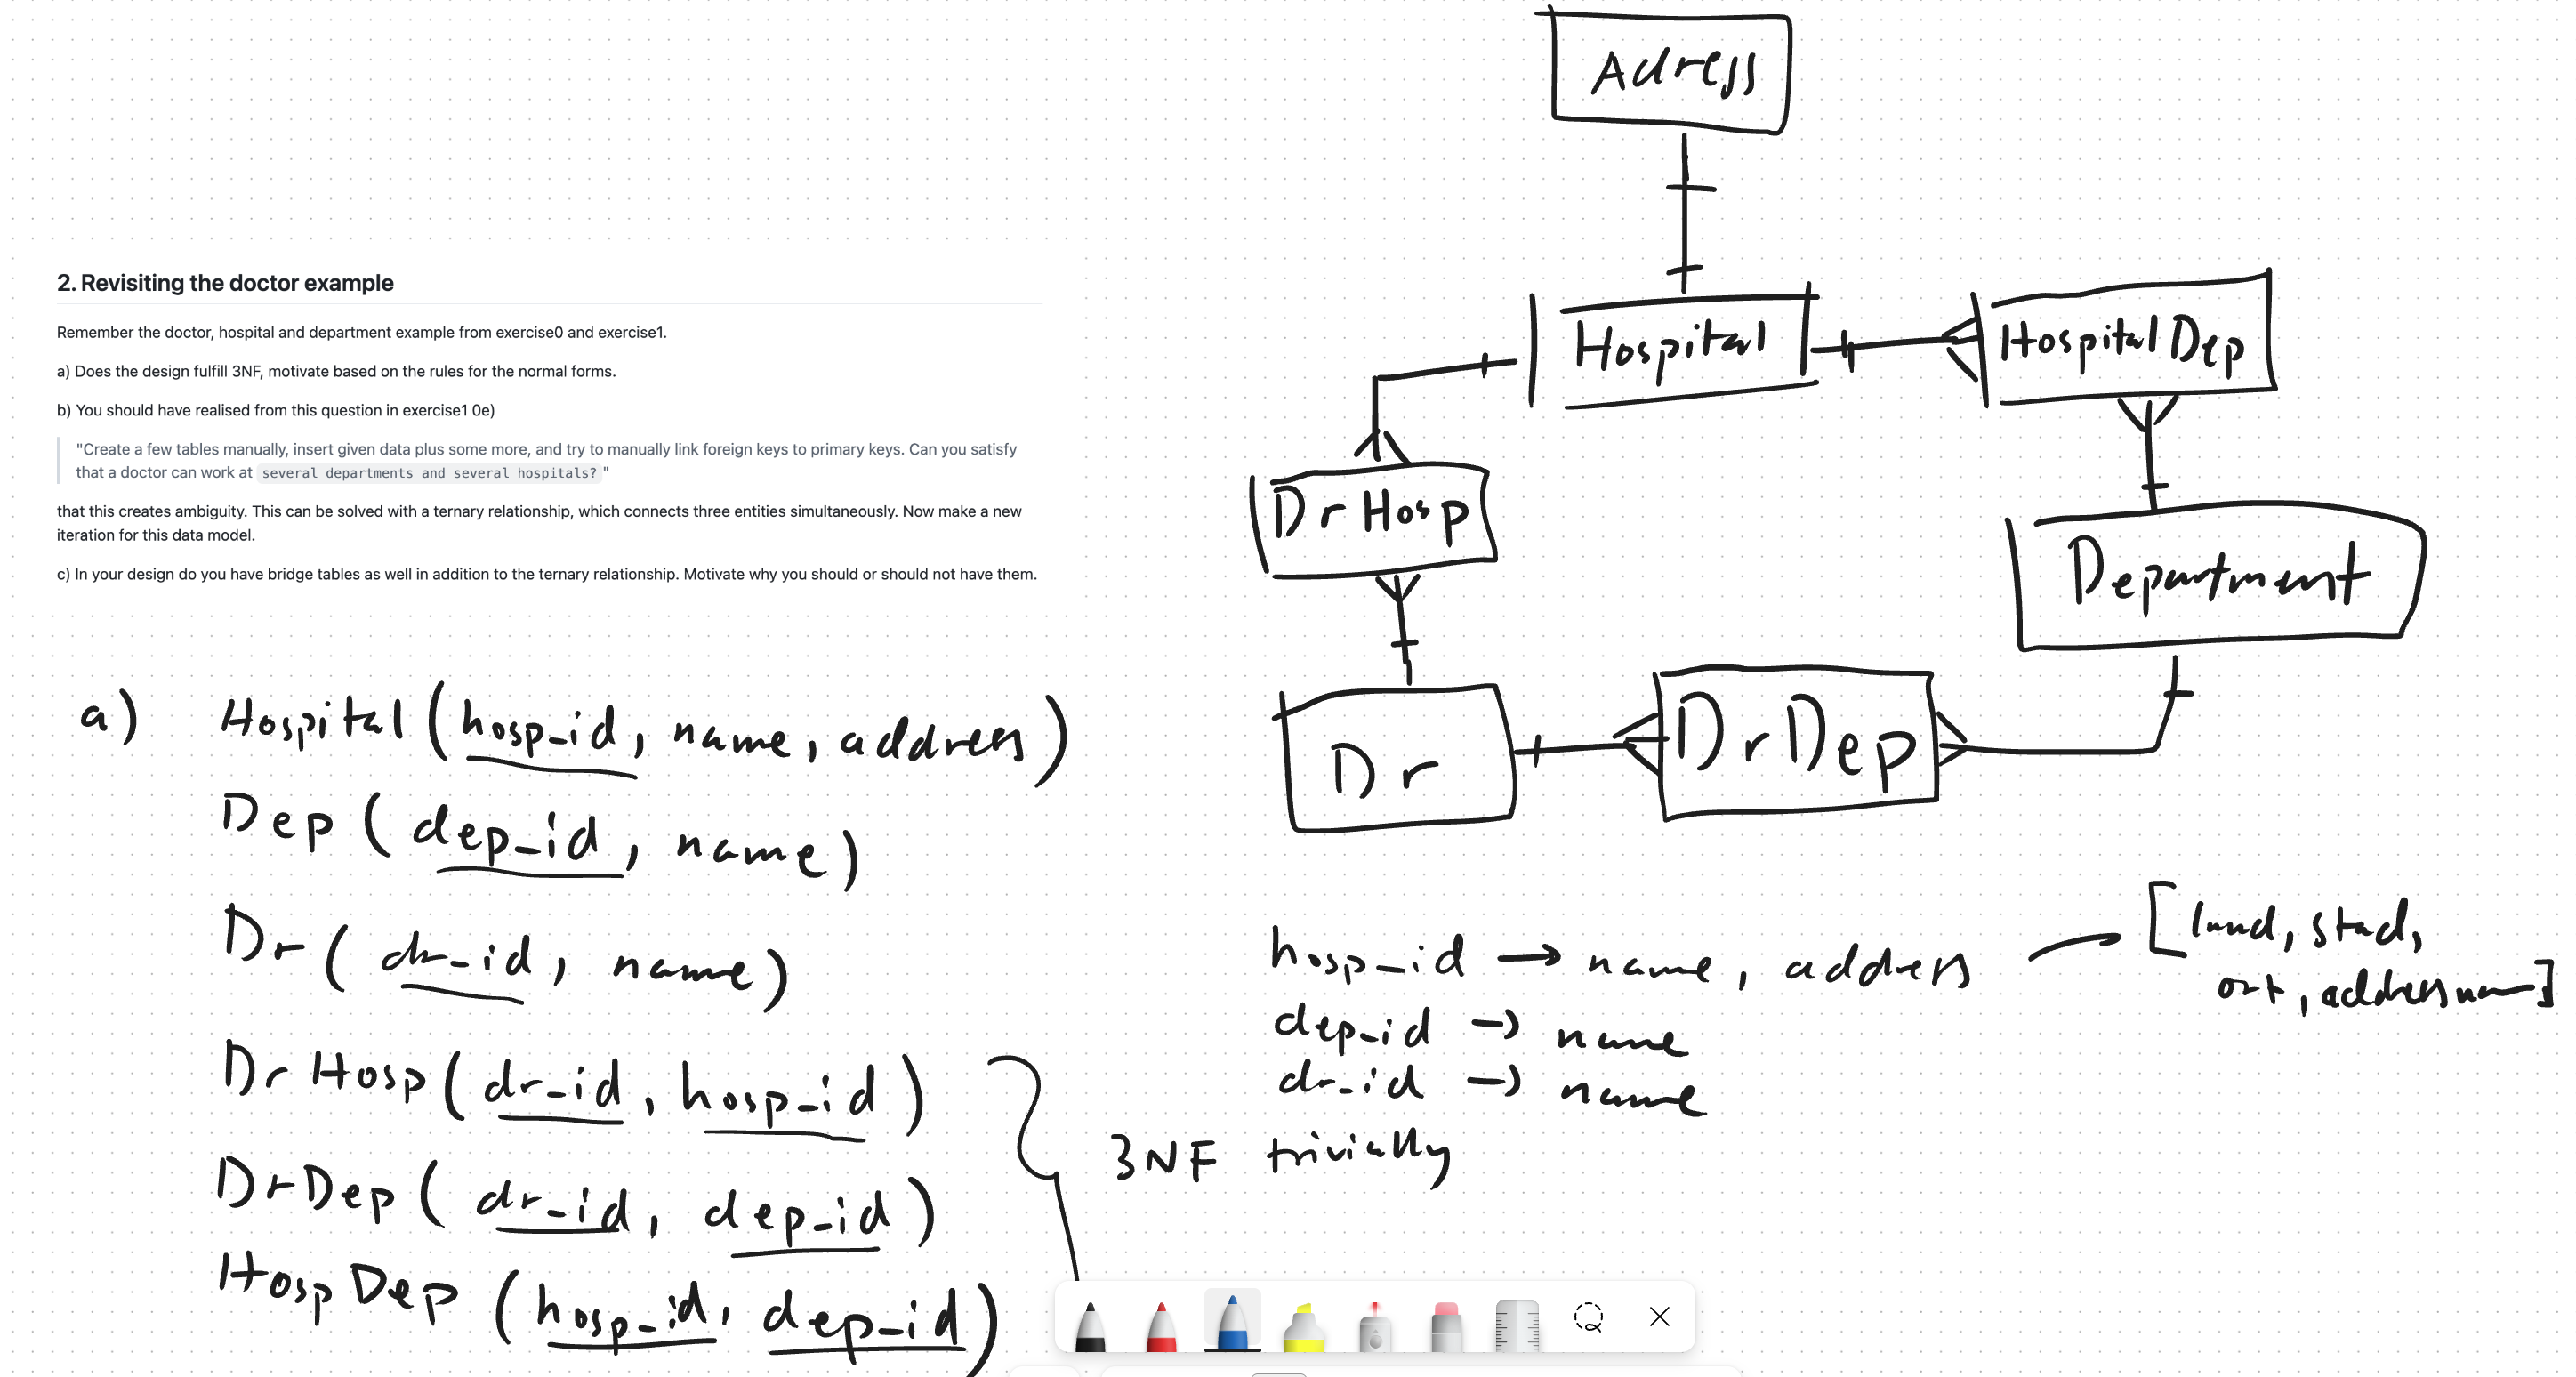 2. Revisiting the doctor example
Remember the doctor, hospital and department example from exercise0 and exercise1.
a) Does the design fulfill 3NF, motivate based on the rules for the normal forms.
b) You should have realised from this question in exercise1 0e)
"Create a few tables manually, insert given data plus some more, and try to manually link foreign keys to primary keys. Can you satisfy
that a doctor can work at several departments and several hospitals? "
that this creates ambiguity. This can be solved with a ternary relationship, which connects three entities simultaneously. Now make a new
iteration for this data model.
c) In your design do you have bridge tables as well in addition to the ternary relationship. Motivate why you should or should not have them.
a) Hospital (hosp_id, name, address)
Dep (dep_id, name)
Dr (dr_id, name)
DrHosp (dr_id, hosp_id)
DrDep (dr_id, dep_id)
HospDep (hosp_id, dep_id)
3NF trivially
Adress
Hospital
HospitalDep
DrHosp
Department
Dr
DrDep
hosp_id → name, address
[land, stad,
ort, addressnam]
dep_id → name
dr_id → name